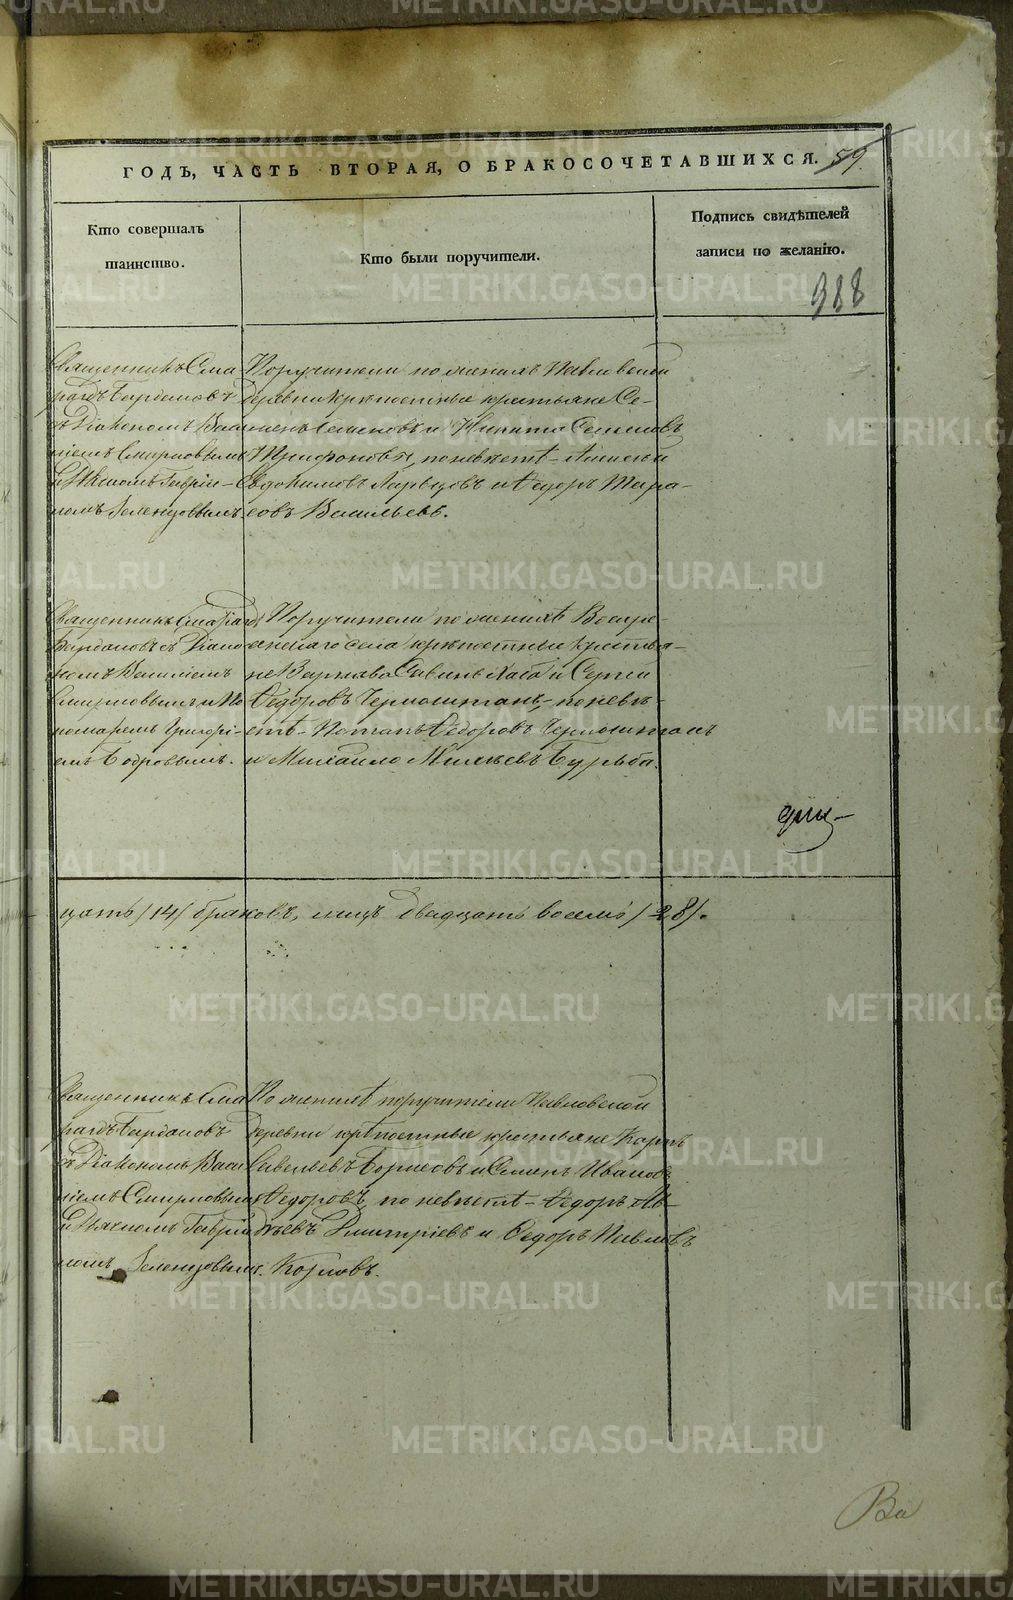 ГОДЪ, ЧАСТЬ ВТОРАЯ, О БРАКОСОЧЕТАВШИХСЯ. 59.
Кто совершалъ
таинство.
Кто были поручители.
Подпись свидѣтелей
записи по желанію.
988
Священникъ Сма
рагдъ Бардановъ
съ Діакономъ Васи
ліемъ Смирновымъ
и Дьячкомъ Гаврiи-
ломъ Зеленцовымъ.
Поручители по женихѣ Павловской
деревни крѣпостные крестьяне Се-
менъ Семеновъ и Никита Семеновъ
Трифоновы, по невѣстѣ - Алексѣй
Евдокимовъ и Ѳедоръ Тара-
совъ Васильевъ.
Священникъ Смарагдъ
Бардановъ съ Діако
номъ Василіемъ
Смирновымъ и По
номаремъ Григорі-
емъ Бобровымъ.
Поручители по женихѣ Воскре-
сенскаго села крѣпостные крестья-
не Варнава Савинъ и Сергей
Ѳедоровъ Черноштанъ, по невѣ-
стѣ - Потапъ Ѳедоровъ Черноштанъ
и Михайло Бурьба.
дни-
цать /14/ браковъ, лицъ двадцать восемь /28/.
Священникъ Сма
рагдъ Бардановъ
съ Діакономъ Васи
ліемъ Смирновымъ
и Дьячкомъ Гаврiи
ломъ Зеленцовымъ.
По женихѣ поручители Павловской
деревни крѣпостные крестьяне Карпъ
Савельевъ Борисовъ и Семенъ Ивановъ
Ѳедоровъ, по невѣстѣ - Ѳедоръ Ав-
дѣевъ Дмитріевъ и Ѳедоръ Павловъ
Козловъ.
Ва
METRIKI.GASO-URAL.RU